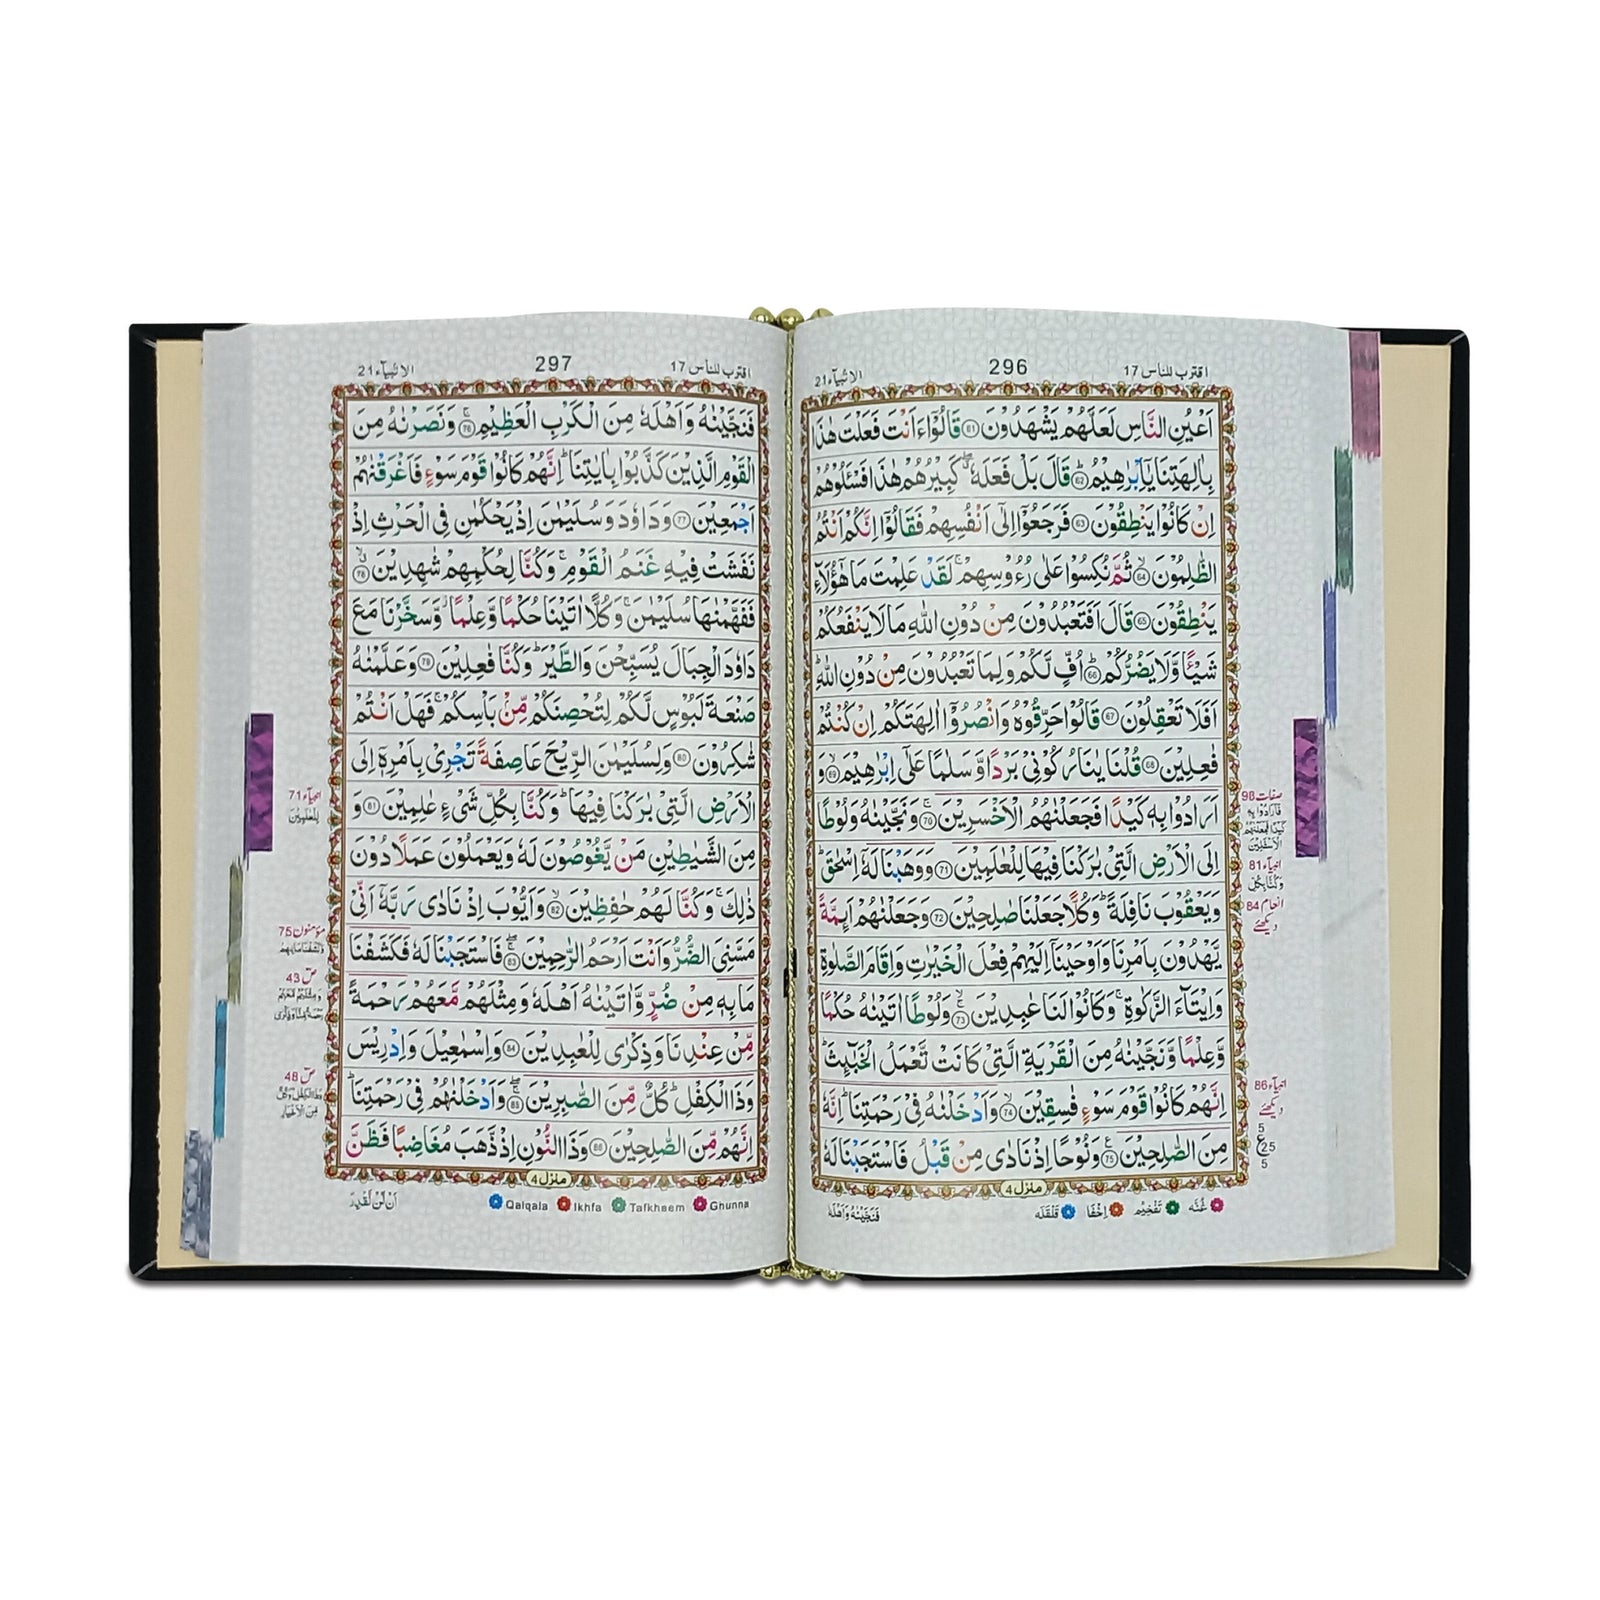 اقترب للناس 17
296
الانبیآء 21
اَعْيُنِ النَّاسِ لَعَلَّهُمْ يَشْهَدُوْنَ ﴿61﴾ قَالُوْٓا ءَاَنْتَ فَعَلْتَ هٰذَا
بِاٰلِهَتِنَا يٰٓاِبْرٰهِيْمُ ﴿62﴾ قَالَ بَلْ فَعَلَهٗ ۖ كَبِيْرُهُمْ هٰذَا فَسْـَٔلُوْهُمْ
اِنْ كَانُوْا يَنْطِقُوْنَ ﴿63﴾ فَرَجَعُوْٓا اِلٰٓى اَنْفُسِهِمْ فَقَالُوْٓا اِنَّكُمْ اَنْتُمُ
الظّٰلِمُوْنَ ﴿64﴾ ثُمَّ نُكِسُوْا عَلٰى رُءُوْسِهِمْ ۚ لَقَدْ عَلِمْتَ مَا هٰٓؤُلَآءِ
يَنْطِقُوْنَ ﴿65﴾ قَالَ اَفَتَعْبُدُوْنَ مِنْ دُوْنِ اللّٰهِ مَا لَا يَنْفَعُكُمْ
شَيْـًٔا وَّلَا يَضُرُّكُمْ ﴿66﴾ اُفٍّ لَّكُمْ وَلِمَا تَعْبُدُوْنَ مِنْ دُوْنِ اللّٰهِ ؕ
اَفَلَا تَعْقِلُوْنَ ﴿67﴾ قَالُوْا حَرِّقُوْهُ وَانْصُرُوْٓا اٰلِهَتَكُمْ اِنْ كُنْتُمْ
فٰعِلِيْنَ ﴿68﴾ قُلْنَا يٰنَارُ كُوْنِىْ بَرْدًا وَّسَلٰمًا عَلٰٓى اِبْرٰهِيْمَ ﴿69﴾ وَ
اَرَادُوْا بِهٖ كَيْدًا فَجَعَلْنٰهُمُ الْاَخْسَرِيْنَ ﴿70﴾ وَنَجَّيْنٰهُ وَلُوْطًا
اِلَى الْاَرْضِ الَّتِىْ بٰرَكْنَا فِيْهَا لِلْعٰلَمِيْنَ ﴿71﴾ وَوَهَبْنَا لَهٗٓ اِسْحٰقَ ؕ
وَيَعْقُوْبَ نَافِلَةً ؕ وَكُلًّا جَعَلْنَا صٰلِحِيْنَ ﴿72﴾ وَجَعَلْنٰهُمْ اَئِمَّةً
يَّهْدُوْنَ بِاَمْرِنَا وَاَوْحَيْنَآ اِلَيْهِمْ فِعْلَ الْخَيْرٰتِ وَاِقَامَ الصَّلٰوةِ
وَاِيْتَآءَ الزَّكٰوةِ ۚ وَكَانُوْا لَنَا عٰبِدِيْنَ ﴿73﴾ وَلُوْطًا اٰتَيْنٰهُ حُكْمًا
وَّعِلْمًا وَّنَجَّيْنٰهُ مِنَ الْقَرْيَةِ الَّتِىْ كَانَتْ تَّعْمَلُ الْخَبٰٓئِثَ ؕ
اِنَّهُمْ كَانُوْا قَوْمَ سَوْءٍ فٰسِقِيْنَ ﴿74﴾ وَاَدْخَلْنٰهُ فِىْ رَحْمَتِنَا ؕ اِنَّهٗ
مِنَ الصّٰلِحِيْنَ ﴿75﴾ وَنُوْحًا اِذْ نَادٰى مِنْ قَبْلُ فَاسْتَجَبْنَا لَهٗ
منزل 4
غُنّہ تَفْخِیْم اِخْفَا قَلْقَلَہ
فَنَجَّيْنٰهُ وَاَهْلَهٗ
صٰفّٰت 98
فَاَرَادُوْا بِهٖ
كَيْدًا فَجَعَلْنٰهُمُ
الْاَسْفَلِيْنَ
انبیآء 81
وَكُنَّا بِكُلِّ
انعام 84
دیکھئے
انبیآء 86
دیکھئے
5
ع 25
5
اقترب للناس 17
297
الانبیآء 21
فَنَجَّيْنٰهُ وَاَهْلَهٗ مِنَ الْكَرْبِ الْعَظِيْمِ ﴿76﴾ وَنَصَرْنٰهُ مِنَ
الْقَوْمِ الَّذِيْنَ كَذَّبُوْا بِاٰيٰتِنَا ؕ اِنَّهُمْ كَانُوْا قَوْمَ سَوْءٍ فَاَغْرَقْنٰهُمْ
اَجْمَعِيْنَ ﴿77﴾ وَدَاوٗدَ وَسُلَيْمٰنَ اِذْ يَحْكُمٰنِ فِى الْحَرْثِ اِذْ
نَفَشَتْ فِيْهِ غَنَمُ الْقَوْمِ ۚ وَكُنَّا لِحُكْمِهِمْ شٰهِدِيْنَ ﴿78﴾
فَفَهَّمْنٰهَا سُلَيْمٰنَ ۚ وَكُلًّا اٰتَيْنَا حُكْمًا وَّعِلْمًا ۖ وَّسَخَّرْنَا مَعَ
دَاوٗدَ الْجِبَالَ يُسَبِّحْنَ وَالطَّيْرَ ؕ وَكُنَّا فٰعِلِيْنَ ﴿79﴾ وَعَلَّمْنٰهُ
صَنْعَةَ لَبُوْسٍ لَّكُمْ لِتُحْصِنَكُمْ مِّنْۢ بَاْسِكُمْ ۚ فَهَلْ اَنْتُمْ
شٰكِرُوْنَ ﴿80﴾ وَلِسُلَيْمٰنَ الرِّيْحَ عَاصِفَةً تَجْرِىْ بِاَمْرِهٖٓ اِلَى
الْاَرْضِ الَّتِىْ بٰرَكْنَا فِيْهَا ؕ وَكُنَّا بِكُلِّ شَىْءٍ عٰلِمِيْنَ ﴿81﴾ وَ
مِنَ الشَّيٰطِيْنِ مَنْ يَّغُوْصُوْنَ لَهٗ وَيَعْمَلُوْنَ عَمَلًا دُوْنَ
ذٰلِكَ ۚ وَكُنَّا لَهُمْ حٰفِظِيْنَ ﴿82﴾ وَاَيُّوْبَ اِذْ نَادٰى رَبَّهٗٓ اَنِّىْ
مَسَّنِىَ الضُّرُّ وَاَنْتَ اَرْحَمُ الرّٰحِمِيْنَ ﴿83﴾ فَاسْتَجَبْنَا لَهٗ فَكَشَفْنَا
مَا بِهٖ مِنْ ضُرٍّ وَّاٰتَيْنٰهُ اَهْلَهٗ وَمِثْلَهُمْ مَّعَهُمْ رَحْمَةً
مِّنْ عِنْدِنَا وَذِكْرٰى لِلْعٰبِدِيْنَ ﴿84﴾ وَاِسْمٰعِيْلَ وَاِدْرِيْسَ
وَذَا الْكِفْلِ ؕ كُلٌّ مِّنَ الصّٰبِرِيْنَ ﴿85﴾ وَاَدْخَلْنٰهُمْ فِىْ رَحْمَتِنَا ؕ
اِنَّهُمْ مِّنَ الصّٰلِحِيْنَ ﴿86﴾ وَذَا النُّوْنِ اِذْ ذَّهَبَ مُغَاضِبًا فَظَنَّ
منزل 4
Qalqala Ikhfa Tafkheem Ghunna
اَنْ لَّنْ نَّقْدِرَ
انبیآء 71
لِلْعٰلَمِيْنَ
مؤمنون 75
وَكَشَفْنَا مَا بِهِمْ
صٓ 43
وَمِثْلَهُمْ مَّعَهُمْ
رَحْمَةً مِّنَّا وَذِكْرٰى
صٓ 48
وَذَا الْكِفْلِ وَكُلٌّ
مِّنَ الْاَخْيَارِ